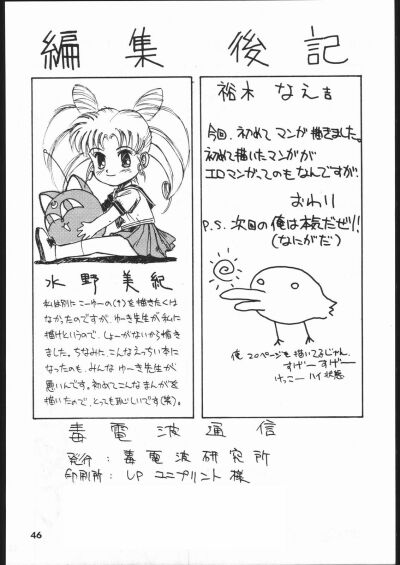 編集後記
裕木なえ吉
今回、初めてマンガ描きました。
初めて描いたマンガが
エロマンガってのもなんですが。
おわり
P.S. 次回の俺は本気だぜり!
(なにがだ)
俺、20ページも描いてるじゃん。
すげー すげー
けっこー ハイ状態
水野美紀
私は別にこーゆーの(↑)を描きたくは
なかったのですが、ゆーき先生が私に
描けというので、しょーがないから描き
ました。ちなみに、こんなえっちい本に
なったのも、みんなゆーき先生が
悪いんです。初めてこんなまんがを
描いたので、とっても恥しいです(笑)。
毒電波通信
発行:毒電波研究所
印刷所:LP ユニプリント様
46